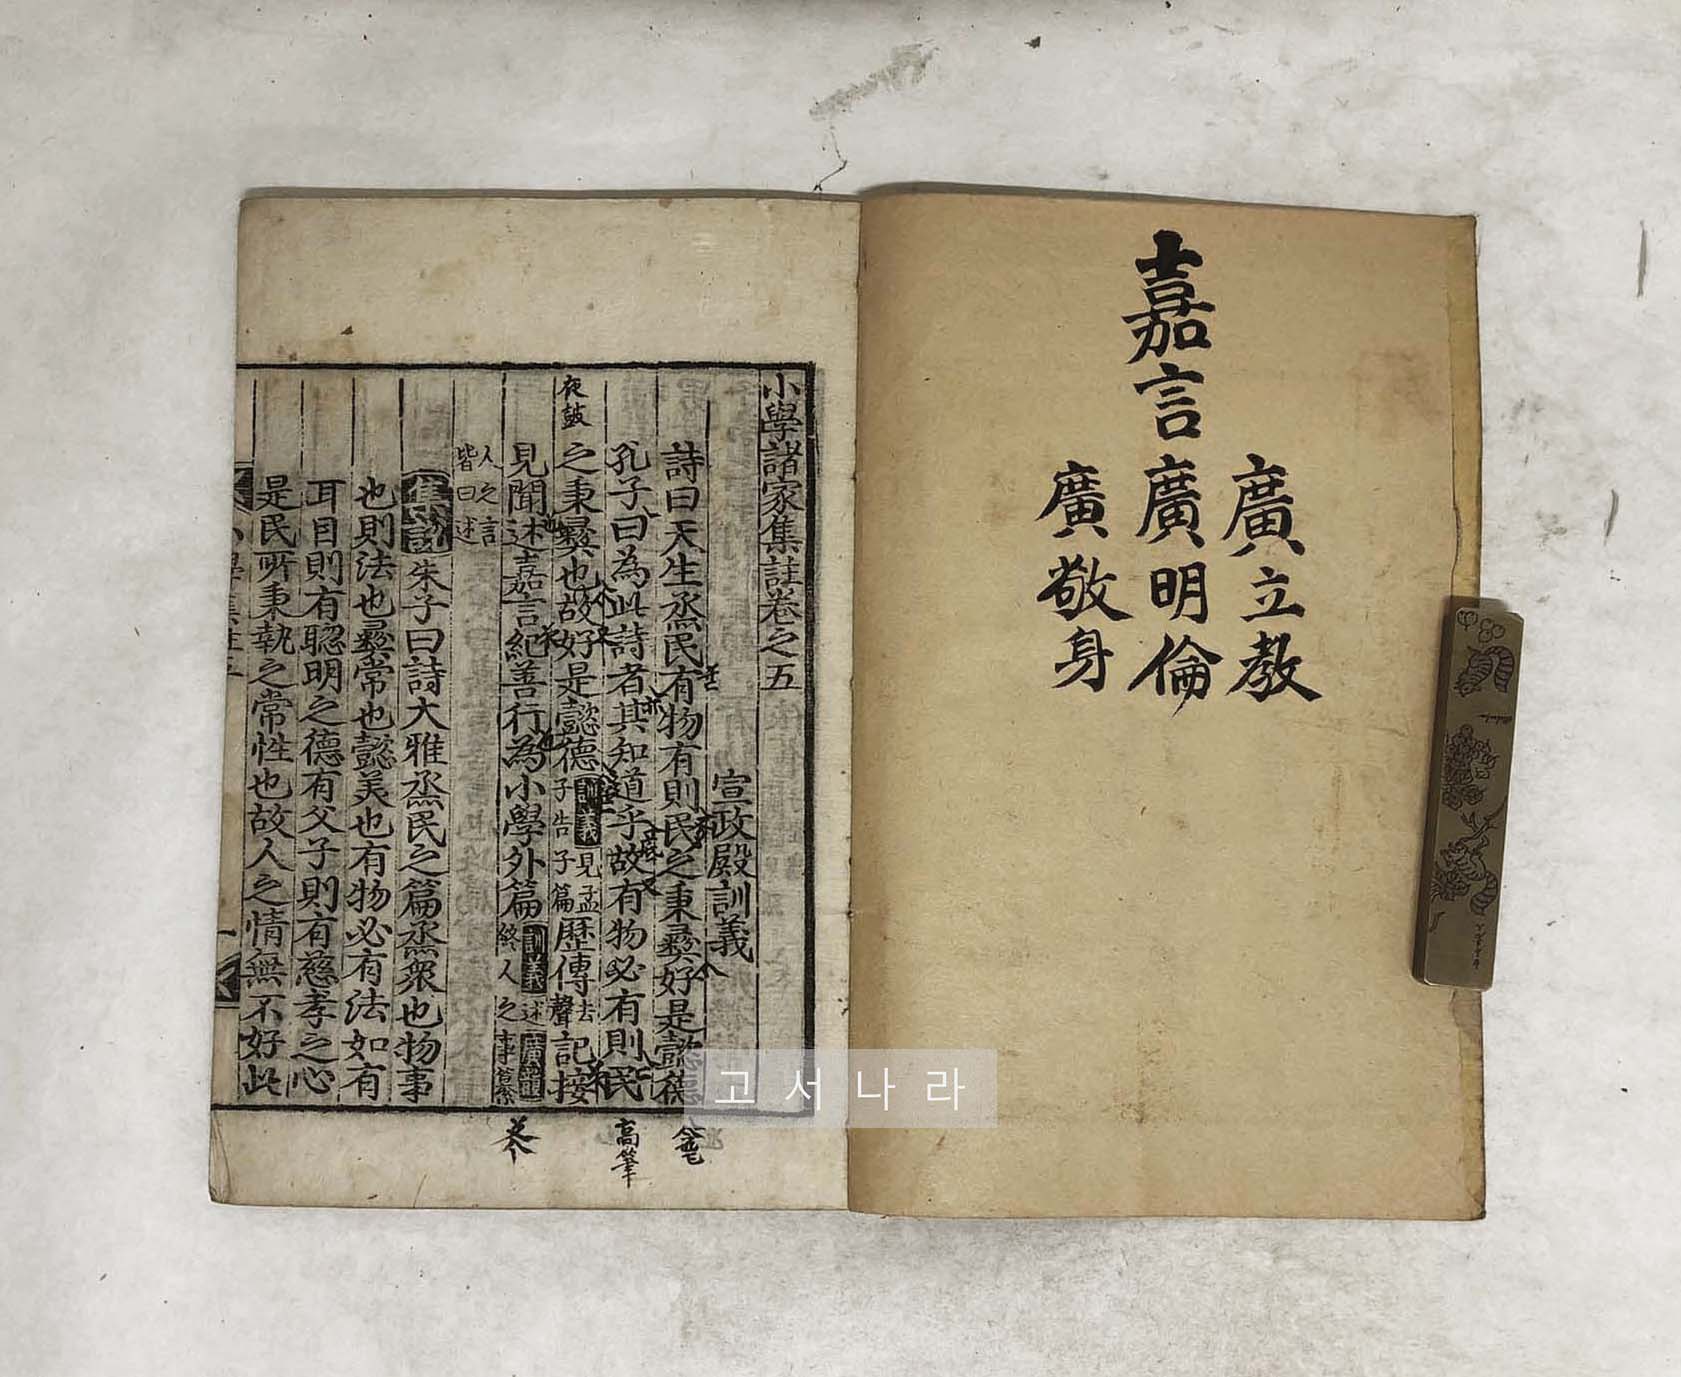 嘉言
廣立教
廣明倫
廣敬身
小學諸家集註卷之五
宣政殿訓義
詩曰天生烝民有物有則民之秉彝好是懿德
孔子曰為此詩者其知道乎故有物必有則民
夜鼓
之秉彝也故好是懿德訓義見孟子告子篇歷傳去聲記按
見聞述嘉言紀善行為小學外篇訓義述
人之言皆曰述
集說朱子曰詩大雅烝民之篇烝眾也物事
也則法也彝常也懿美也有物必有法如有
耳目則有聰明之德有父子則有慈孝之心
是民所秉執之常性也故人之情無不好此
高筆
고서나라